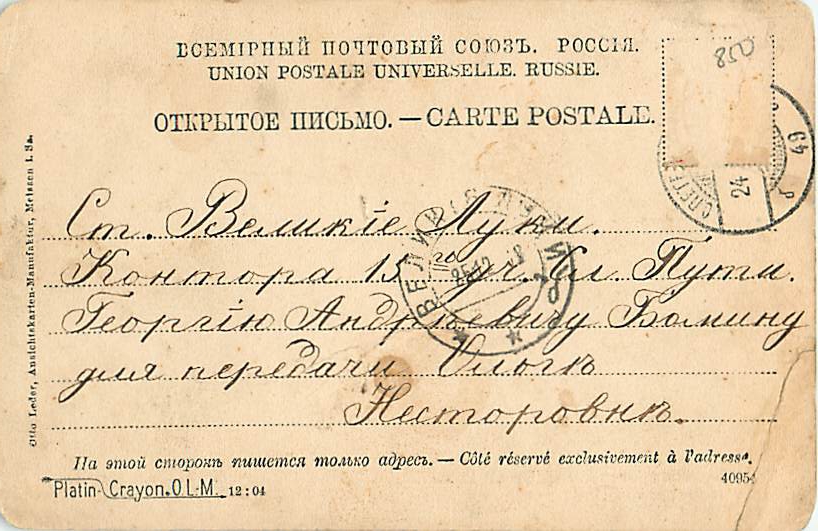 850
ВСЕМІРНЫЙ ПОЧТОВЫЙ СОЮЗЪ. РОССІЯ.
UNION POSTALE UNIVERSELLE. RUSSIE.
ОТКРЫТОЕ ПИСЬМО. — CARTE POSTALE.
24
49
Ст. Великіе Луки.
Контора 15 уч. сл. Пути.
Георгію Андрѣевичу Бомину
для передачи
Несторовнѣ.
ВЕЛИК
Otto Leder, Ansichtskarten-Manufaktur, Meissen i. Sa.
На этой сторонѣ пишется только адресъ. — Côté réservé exclusivement à l'adresse.
Platin-Crayon. O.L-M. 12:04
40954